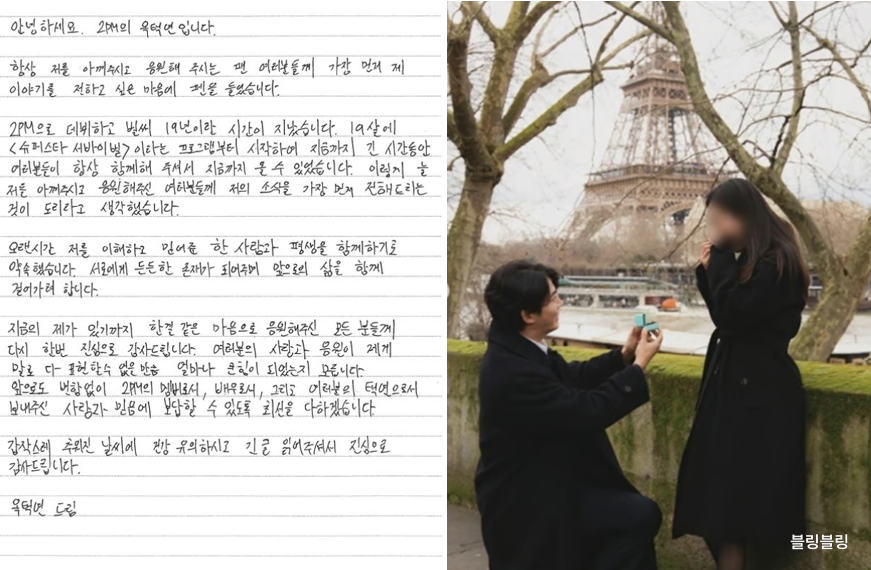 안녕하세요. 2PM의 옥택연입니다.
항상 저를 아껴주시고 응원해 주시는 팬 여러분들께 가장 먼저 제
이야기를 전하고 싶은 마음에 펜을 들었습니다.
2PM으로 데뷔하고 벌써 19년이란 시간이 지났습니다. 19살에
<슈퍼스타 서바이벌>이라는 프로그램부터 시작하여 지금까지 긴 시간동안
여러분들이 항상 함께해 주셔서 지금까지 올 수 있었습니다. 이렇게 늘
저를 아껴주시고 응원해주신 여러분들께 저의 소식을 가장 먼저 전해드리는
것이 도리라고 생각했습니다.
오랜시간 저를 이해하고 믿어준 한 사람과 평생을 함께하기로
약속했습니다. 서로에게 든든한 존재가 되어주며 앞으로의 삶을 함께
걸어가려 합니다.
지금의 제가 있기까지 한결 같은 마음으로 응원해주신 모든 분들께
다시 한번 진심으로 감사드립니다. 여러분의 사랑과 응원이 제게
말로 다 표현할수 없을 만큼 얼마나 큰힘이 되었는지 모릅니다.
앞으로도 변함없이 2PM의 멤버로서, 배우로서, 그리고 여러분의 택연으로서
보내주신 사랑과 믿음에 보답할 수 있도록 최선을 다하겠습니다.
갑작스레 추워진 날씨에 건강 유의하시고 긴 글 읽어주셔서 진심으로
감사드립니다.
옥택연 드림
블링블링